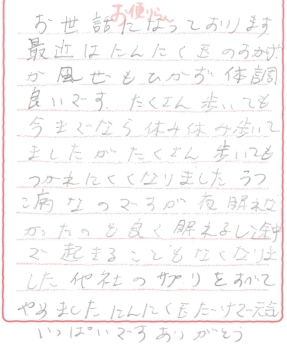 お便りらん
お世話になっております
最近はにんにく玉のおかげ
か風ぜもひかず体調
良いです。たくさん歩いても
今までなら休み休み歩いて
ましたがたくさん歩いても
つかれにくくなりましたうつ
病なのですが夜眠れな
かったのも良く眠えるし途中
で起きることもなくなりま
した他社のサプリをすべて
やめましたにんにく玉だけで元気
いっぱいですありがとう